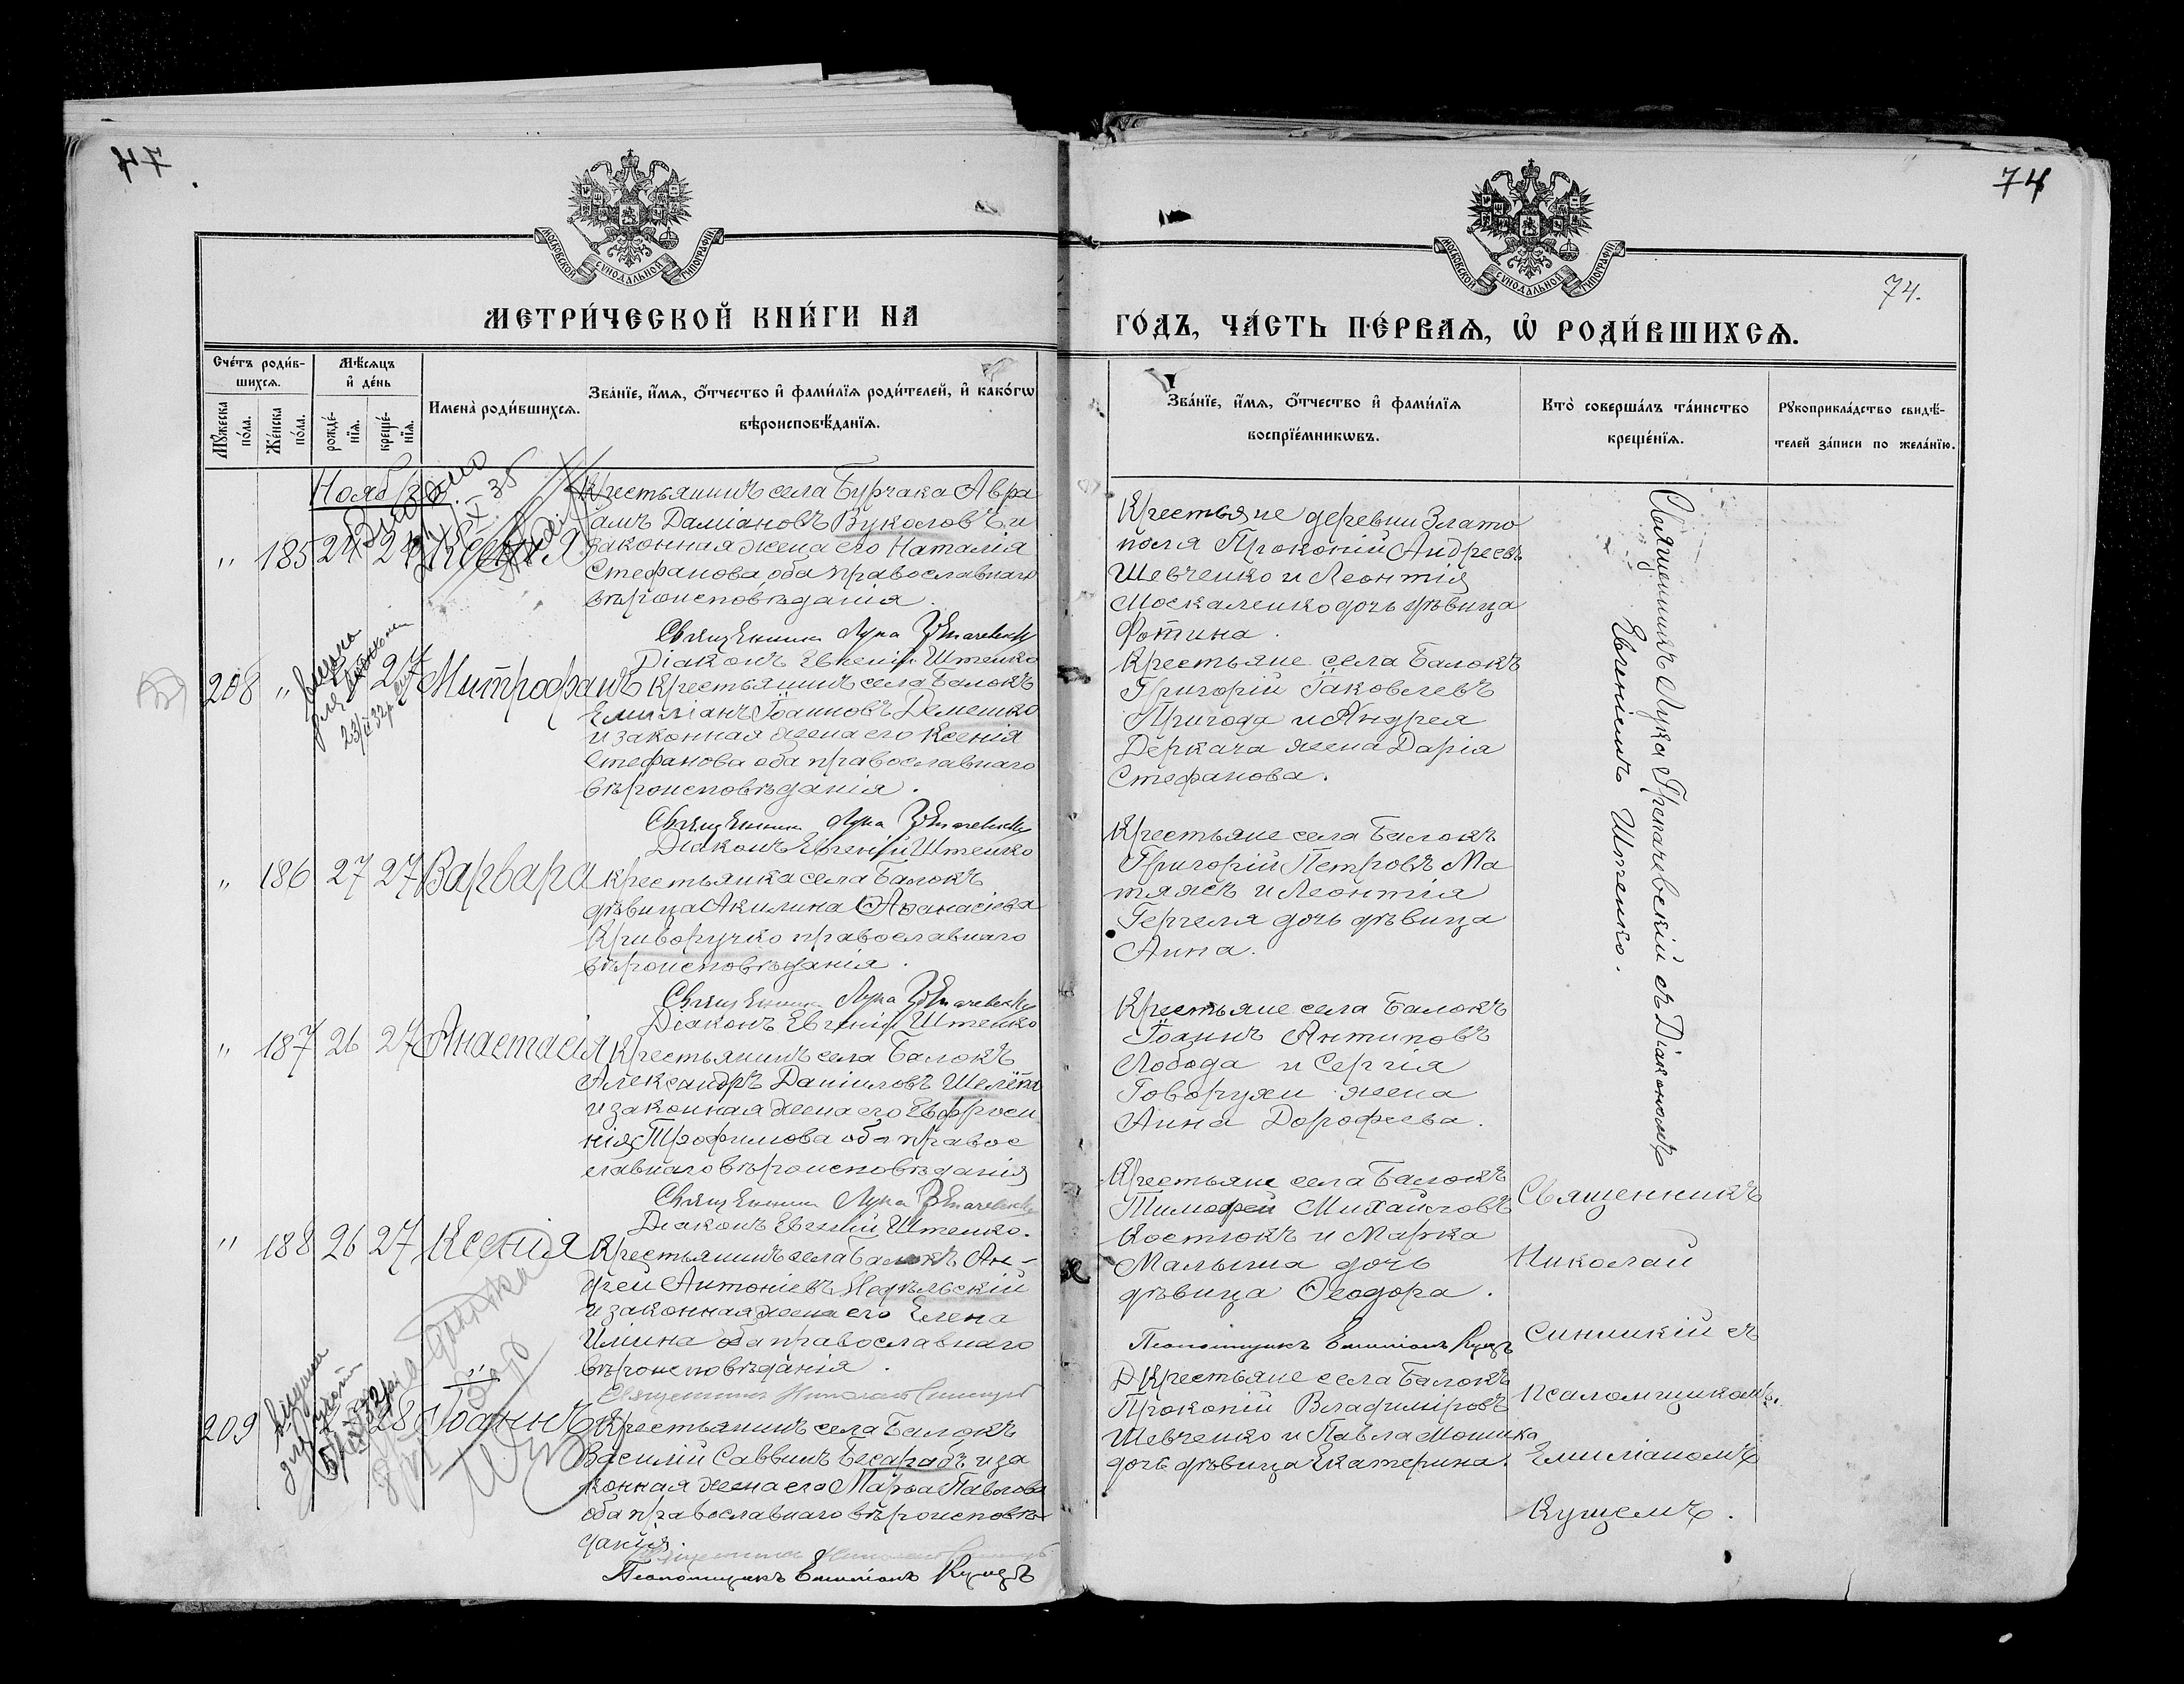 74
МОСКОВСКОЙ СѴНОДАЛЬНОЙ ТИПОГРАФІИ
МЕТРИ́ЧЕСКОЙ КНИ́ГИ НА
Сче́тъ роди́в-
шихсѧ.
Мѣ́сѧцъ
и҆ де́нь
Мꙋ́жеска по́ла.
Же́нска по́ла.
рожде́-нїѧ.
креще́-нїѧ.
Имена̀ роди́вшихсѧ.
Зва́нїе, и҆́мѧ, ѻ҆́тчество и҆ фами́лїѧ роди́телей, и҆ како́гѡ
вѣроисповѣ́данїѧ.
Ноябрь
" 185 24 24 Ксенія
Крестьянинъ села Бурчака Авра
амъ Даміановъ Вуколовъ и
законная жена его Наталія
Стефанова оба православнаго
вѣроисповѣданія.
Священникъ Лука
Діаконъ Евгеній Штенко
208 " 27 Митрофанъ
Крестьянинъ села Балокъ
Емиліанъ Іоанновъ Демешко
и законная жена его Ксенія
Стефанова оба православнаго
вѣроисповѣданія.
Священникъ Лука
Діаконъ Евгеній Штенко
" 186 27 27 Варвара
Крестьянка села Балокъ
дѣвица Акилина Аѳанасіева
Криворучко православнаго
вѣроисповѣданія.
Священникъ Лука
Діаконъ Евгеній Штенко
" 187 26 27 Анастасія
Крестьянинъ села Балокъ
Александръ Даніиловъ
и законная жена его Евфроси
нія Трофимова оба правос
лавнаго вѣроисповѣданія
Священникъ Лука
Діаконъ Евгеній Штенко.
" 188 26 27 Ксенія
Крестьянинъ села Балокъ Ан-
дрей Антоніевъ Недѣльскій
и законная жена его Елена
Иліина оба православнаго
вѣроисповѣданія.
Священникъ Николай
209 28 Іоаннъ
Крестьянинъ села Балокъ
Василій Саввинъ Бесарабъ и за
конная жена его Марѳа Павлова
оба православнаго вѣроисповѣ-
данія.
Священникъ Николай
Псаломщикъ Емиліанъ Кущъ
74
74.
МОСКОВСКОЙ СѴНОДАЛЬНОЙ ТИПОГРАФІИ
ГО́ДЪ, ЧА́СТЬ ПЕ́РВАѦ, Ѡ҆ РОДИ́ВШИХСѦ.
Зва́нїе, и҆́мѧ, ѻ҆́тчество и҆ фами́лїѧ
воспрїе́мникѡвъ.
Кто̀ соверша́лъ та́инство
креще́нїѧ.
Рꙋкоприкла́дство свидѣ́-
телей за́писи по жела́нїю.
Крестьяне деревни Злато
поля Прокопій Андреевъ
Шевченко и Леонтія
Москаленко дочь дѣвица
Фотина.
Крестьяне села Балокъ
Григорій Іаковлевъ
Пригода и Андрея
Деркача жена Дарія
Стефанова.
Крестьяне села Балокъ
Григорій Петровъ Ма
тяжъ и Леонтія
Гергеля дочь дѣвица
Анна.
Крестьяне села Балокъ
Іоаннъ Антиповъ
Лобода и Сергія
Говорухи жена
Анна Дороѳеева.
Крестьяне села Балокъ
Тимофей Михайловъ
Костюкъ и Марка
Малыша дочь
дѣвица Ѳеодора.
Псаломщикъ Емиліанъ Кущъ
Крестьяне села Балокъ
Прокопій Владиміровъ
Шевченко и Павла Мошика
дочь дѣвица Екатерина.
Священникъ Лука Гречачевскій съ Діакономъ
Евгеніемъ Штенко.
Священникъ
Николай
Синицкій съ
псаломщикомъ
Емиліаномъ
Кущемъ.